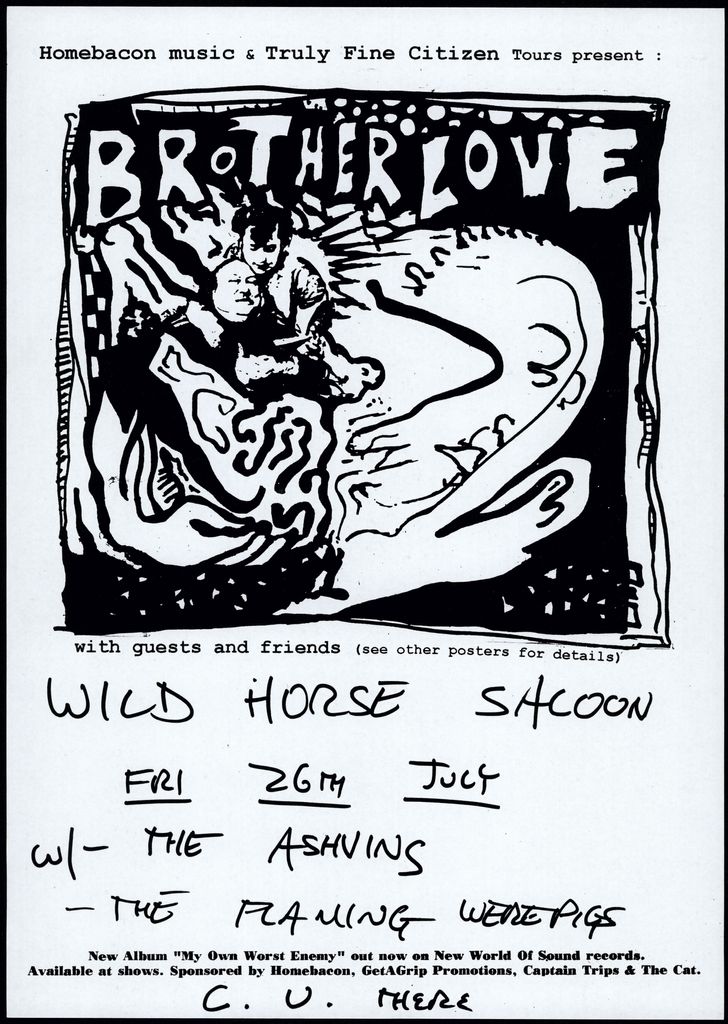 Homebacon music & Truly Fine Citizen Tours present :
BROTHER LOVE
with guests and friends (see other posters for details)
WILD HORSE SALOON
FRI 26TH JULY
w/- THE ASHVINS
- THE FLAMING WEREPIGS
New Album "My Own Worst Enemy" out now on New World Of Sound records.
Available at shows. Sponsored by Homebacon, GetAGrip Promotions, Captain Trips & The Cat.
C. U. THERE